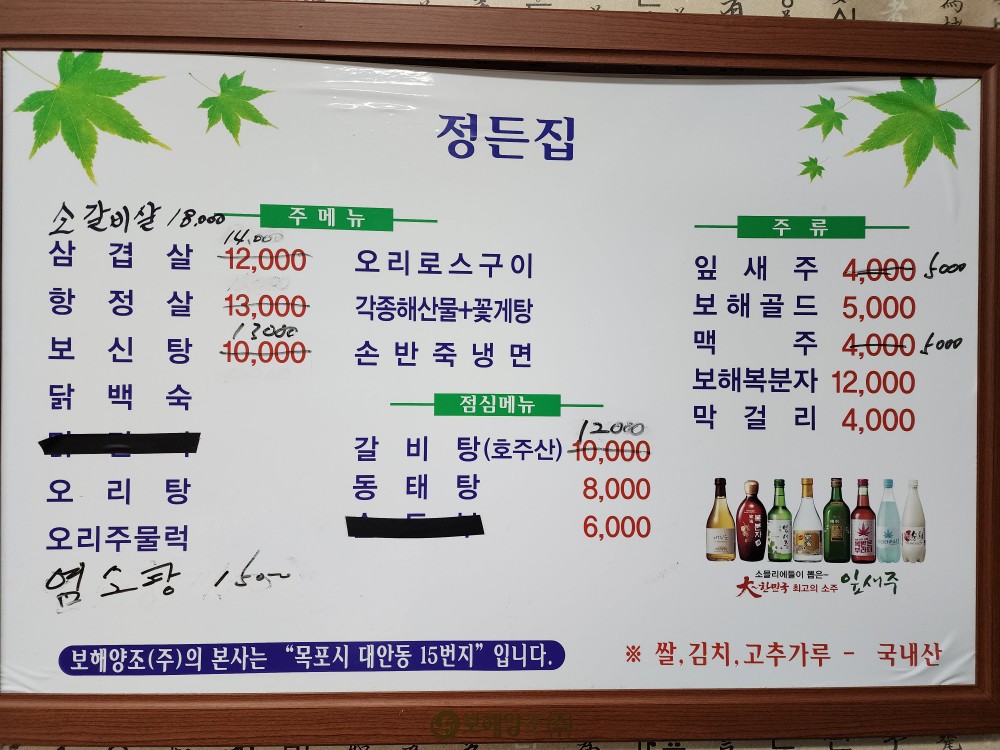 정든집
주메뉴
소갈비살 18,000
14,000
삼겹살 12,000
항정살 13,000
13000
보신탕 10,000
닭백숙
오리탕
오리주물럭
염소탕 15000
오리로스구이
각종해산물+꽃게탕
손반죽냉면
점심메뉴
12000
갈비탕(호주산) 10,000
동태탕 8,000
6,000
주류
잎새주 4,000 5000
보해골드 5,000
맥주 4,000 5000
보해복분자 12,000
막걸리 4,000
소믈리에들이 뽑은~
大~한민국 최고의 소주 잎새주
보해양조(주)의 본사는 “목포시 대안동 15번지” 입니다.
※ 쌀,김치,고추가루 - 국내산
보해양조(주)